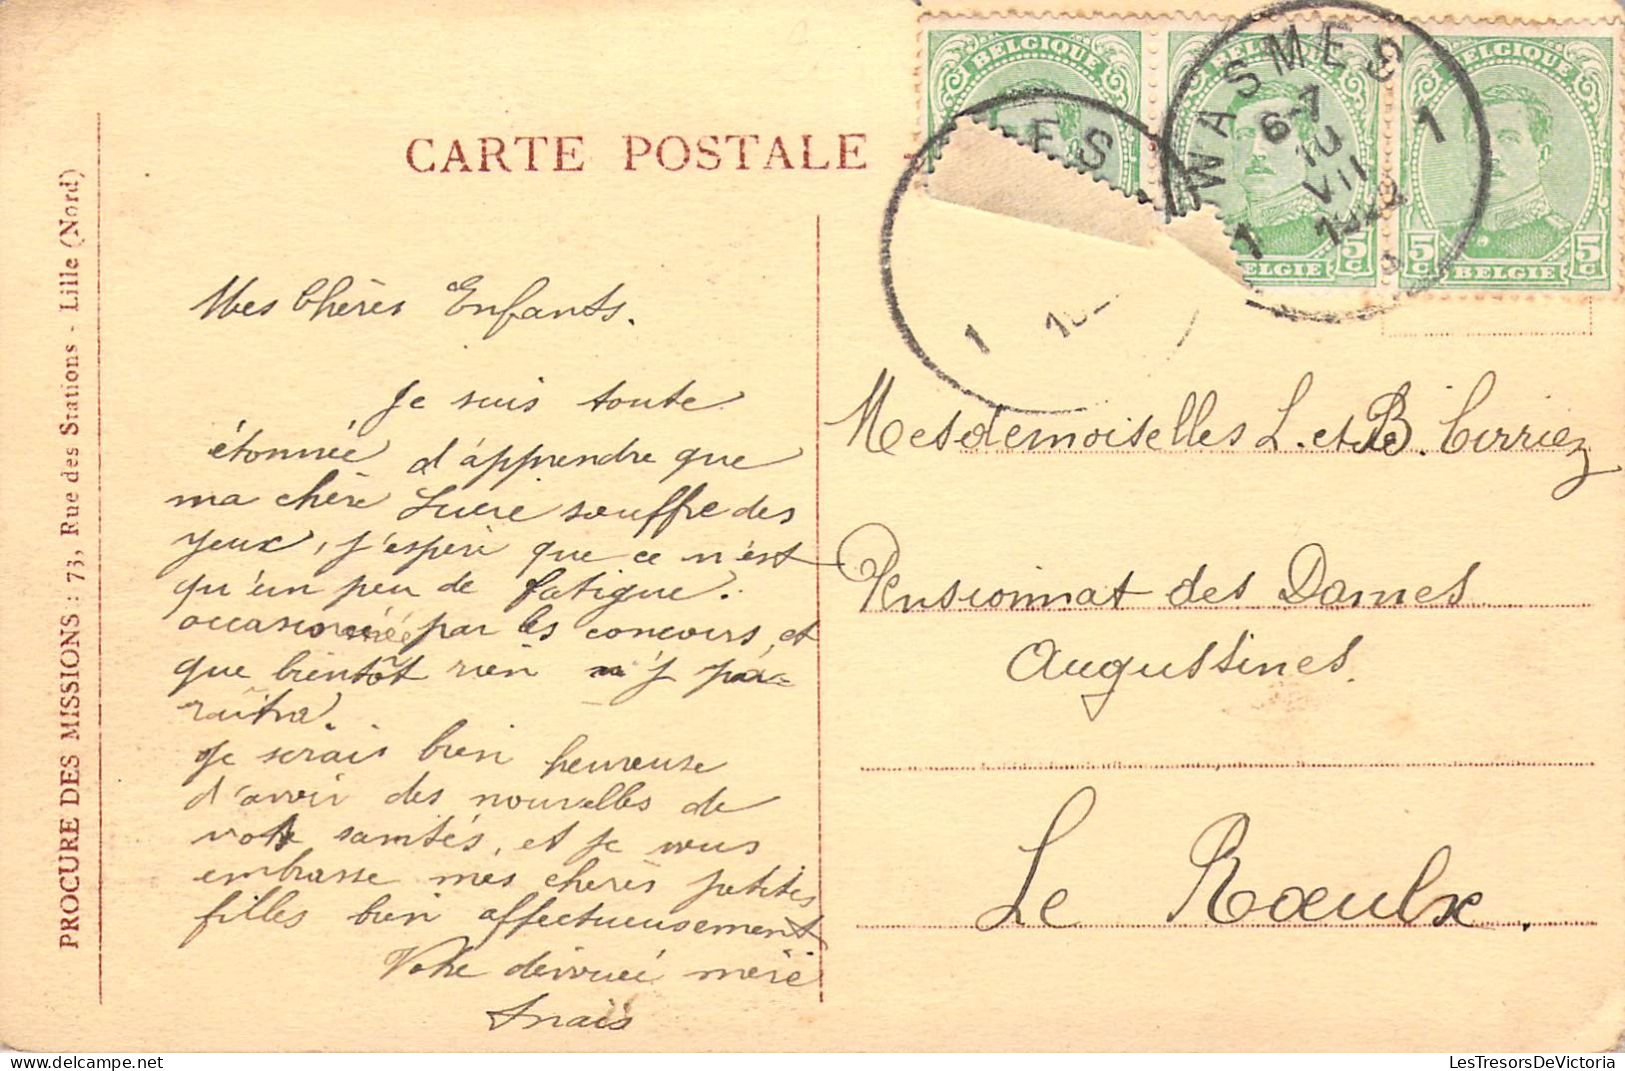 CARTE POSTALE
PROCURE DES MISSIONS : 73, Rue des Stations - Lille (Nord)
BELGIQUE
BELGIQUE
BELGIQUE
5c BELGIE 5c
WASMES
6-7
10
VII
1
1
ES
1
Mes Chères Enfants.
Je suis toute
étonnée d'apprendre que
ma chère Lucie souffre des
yeux, j'espère que ce n'est
qu'un peu de fatigue.
occasionnée par les concours, et
que bientôt rien n'y pa-
raîtra.
Je serais bien heureuse
d'avoir des nouvelles de
votre santés, et je vous
embrasse mes chères petites
filles bien affectueusement
Votre dévouée mère
Anaïs
Mesdemoiselles L. et B. Cirriez
Pensionnat des Dames
Augustines.
Le Rœulx.
LesTresorsDeVictoria
delcampe.net